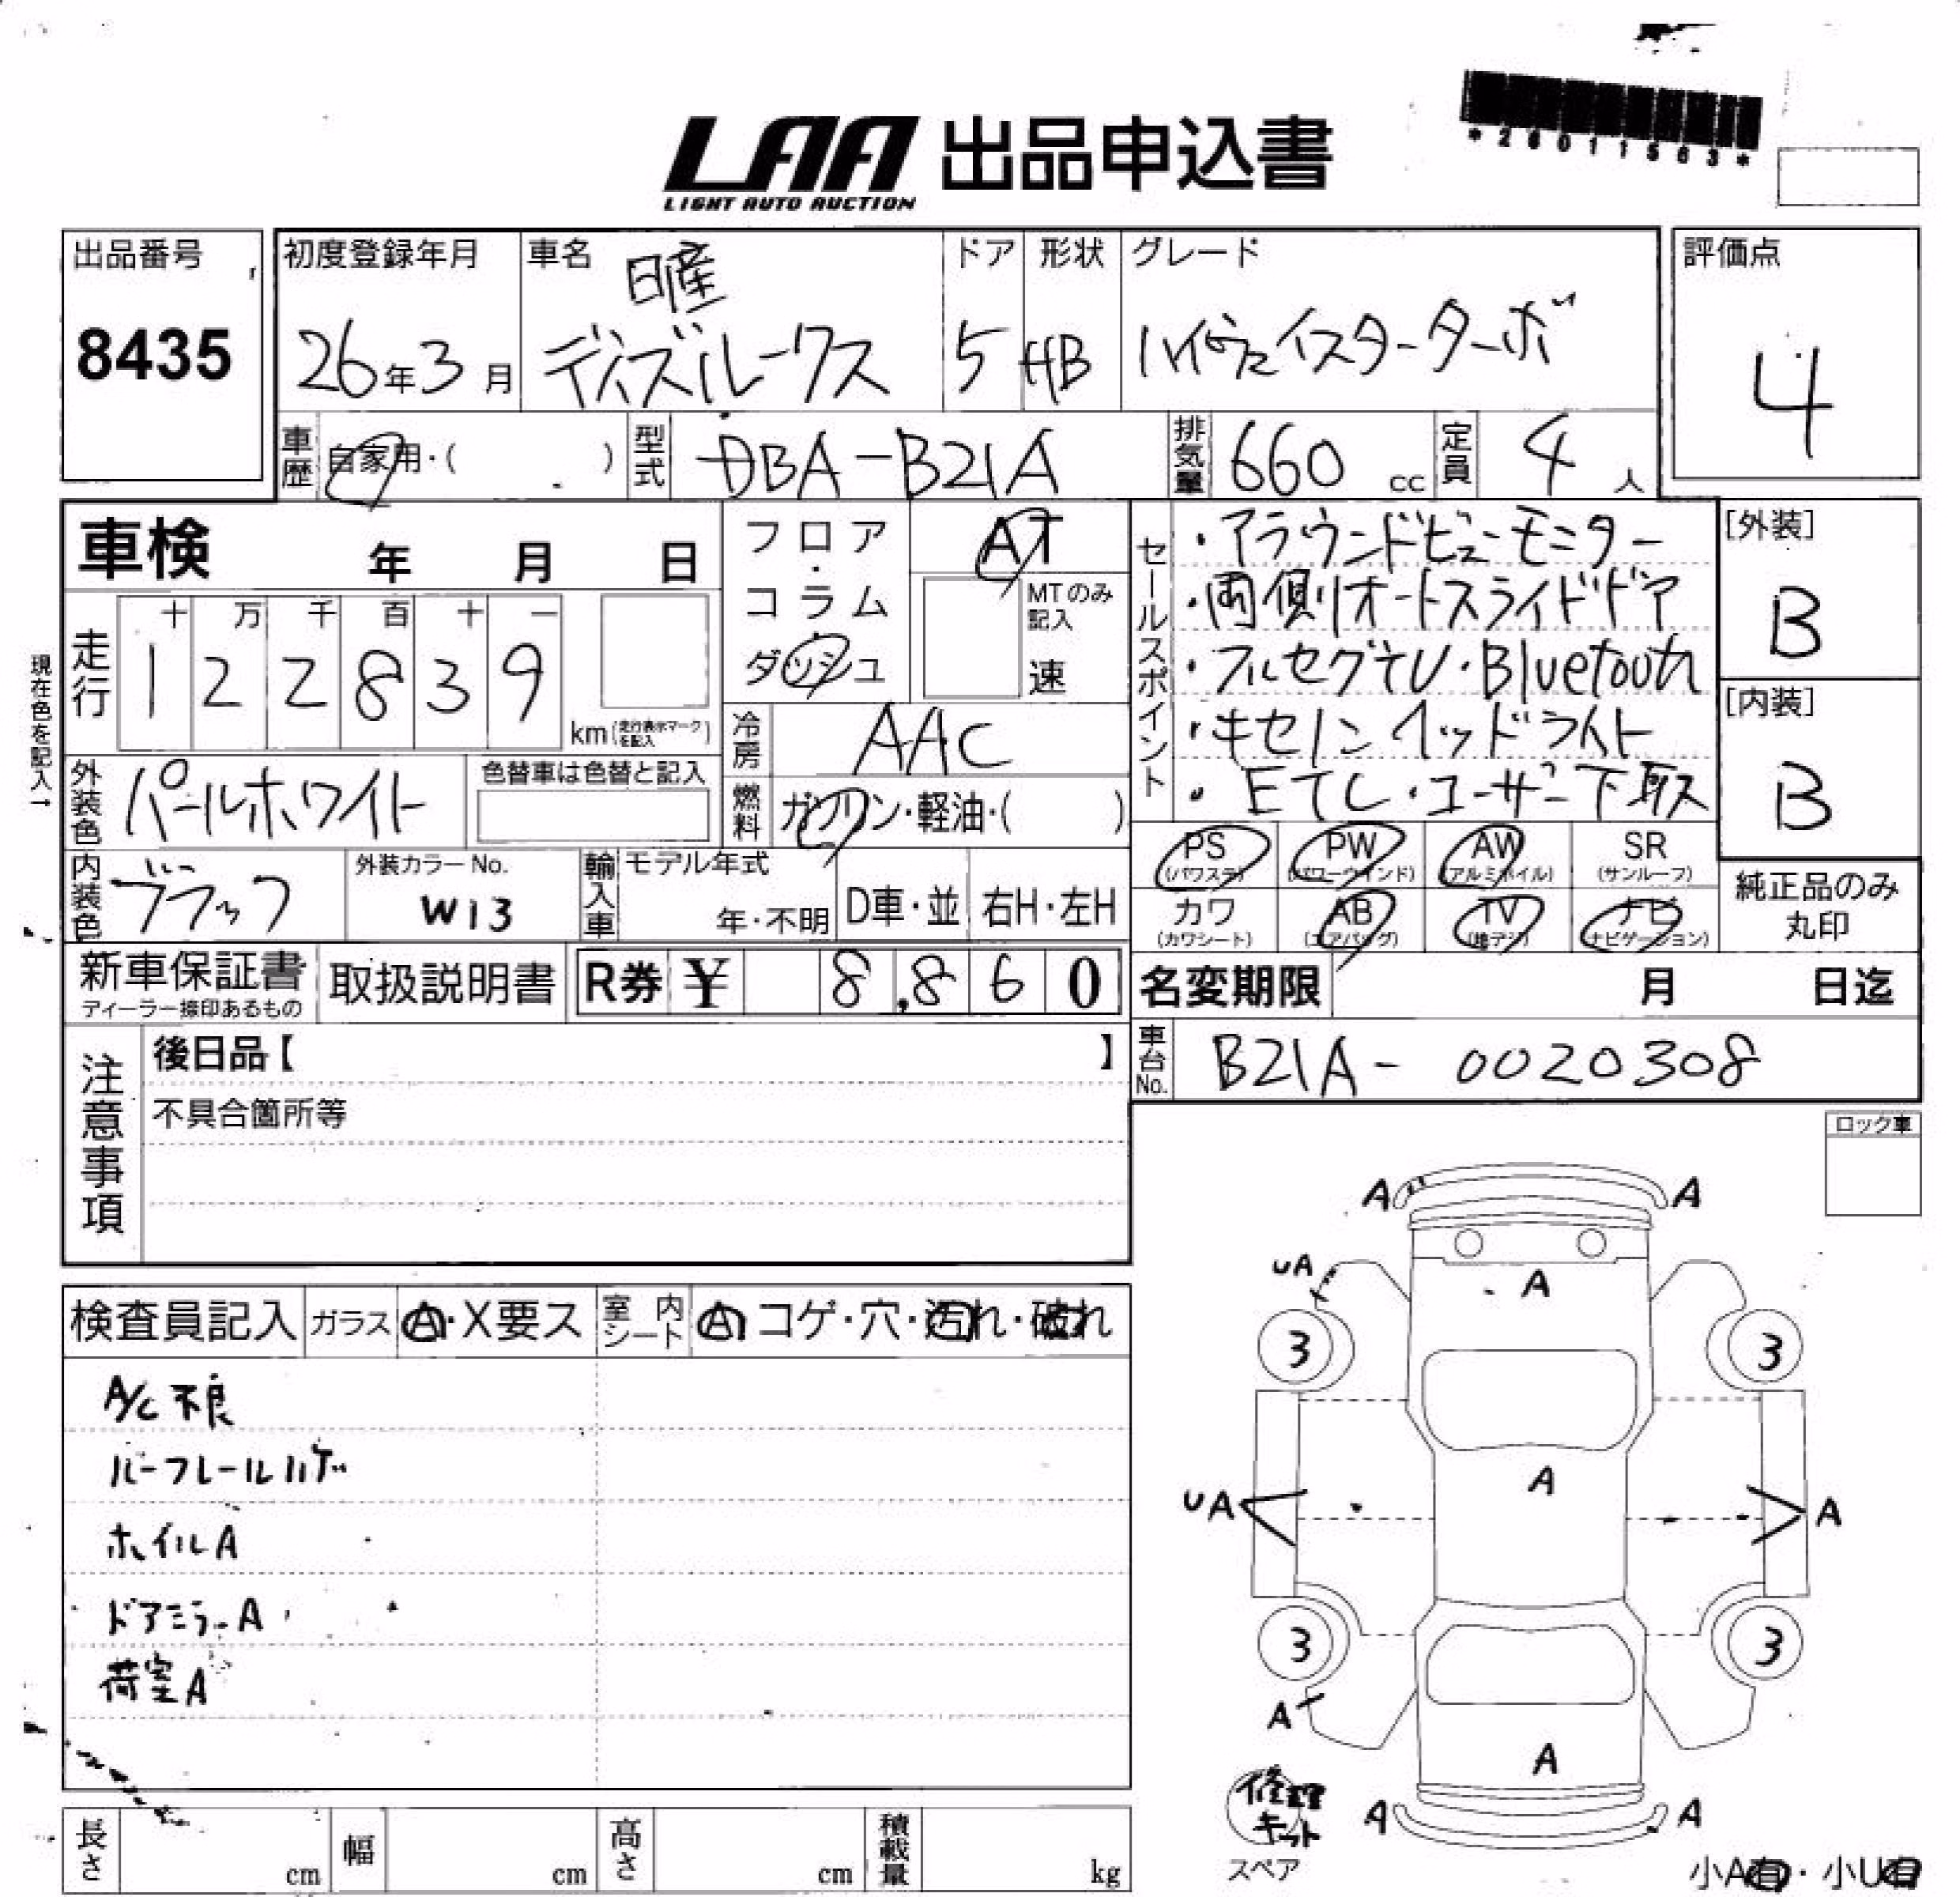 *26011563*
LAA 出品申込書
LIGHT AUTO AUCTION
出品番号
8435
初度登録年月
26年3月
車名
日産
デイズルークス
ドア
5
形状
HB
グレード
ハイウェイスターターボ
評価点
4
車歴
自家用・( )
型式
DBA-B21A
排気量
660 cc
定員
4 人
車検 年 月 日
フロア・コラム・ダッシュ
AT
MTのみ記入
速
セールスポイント
・アラウンドビューモニター
・両側オートスライドドア
・フルセグTV・Bluetooth
・キセノンヘッドライト
・ETC・ユーザー下取
[外装]
B
[内装]
B
現在色を記入→
走行
十 万 千 百 十 一
1 2 2 8 3 9
km(走行表示マークを記入)
冷房
AAC
燃料
ガソリン・軽油・( )
外装色
パールホワイト
色替車は色替と記入
内装色
ブラック
外装カラーNo.
W13
輸入車
モデル年式
年・不明
D車・並
右H・左H
PS
(パワステ)
PW
(パワーウインド)
AW
(アルミホイル)
SR
(サンルーフ)
カワ
(カワシート)
AB
(エアバッグ)
TV
(地デジ)
ナビ
(ナビゲーション)
純正品のみ
丸印
新車保証書
ディーラー捺印あるもの
取扱説明書
R券 ¥ 8,860
名変期限 月 日迄
車台No.
B21A- 0020308
注意事項
後日品【 】
不具合箇所等
ロック車
検査員記入
ガラス
A・X要ス
室内シート
A コゲ・穴・汚れ・破れ
A/C不良
ルーフレールハゲ
ホイルA
ドアミラーA
荷室A
A A
UA
A
3 3
A
UA A
3 3
A
A
修理
キット
スペア
A A
小A有・小U有
長さ cm
幅 cm
高さ cm
積載量 kg